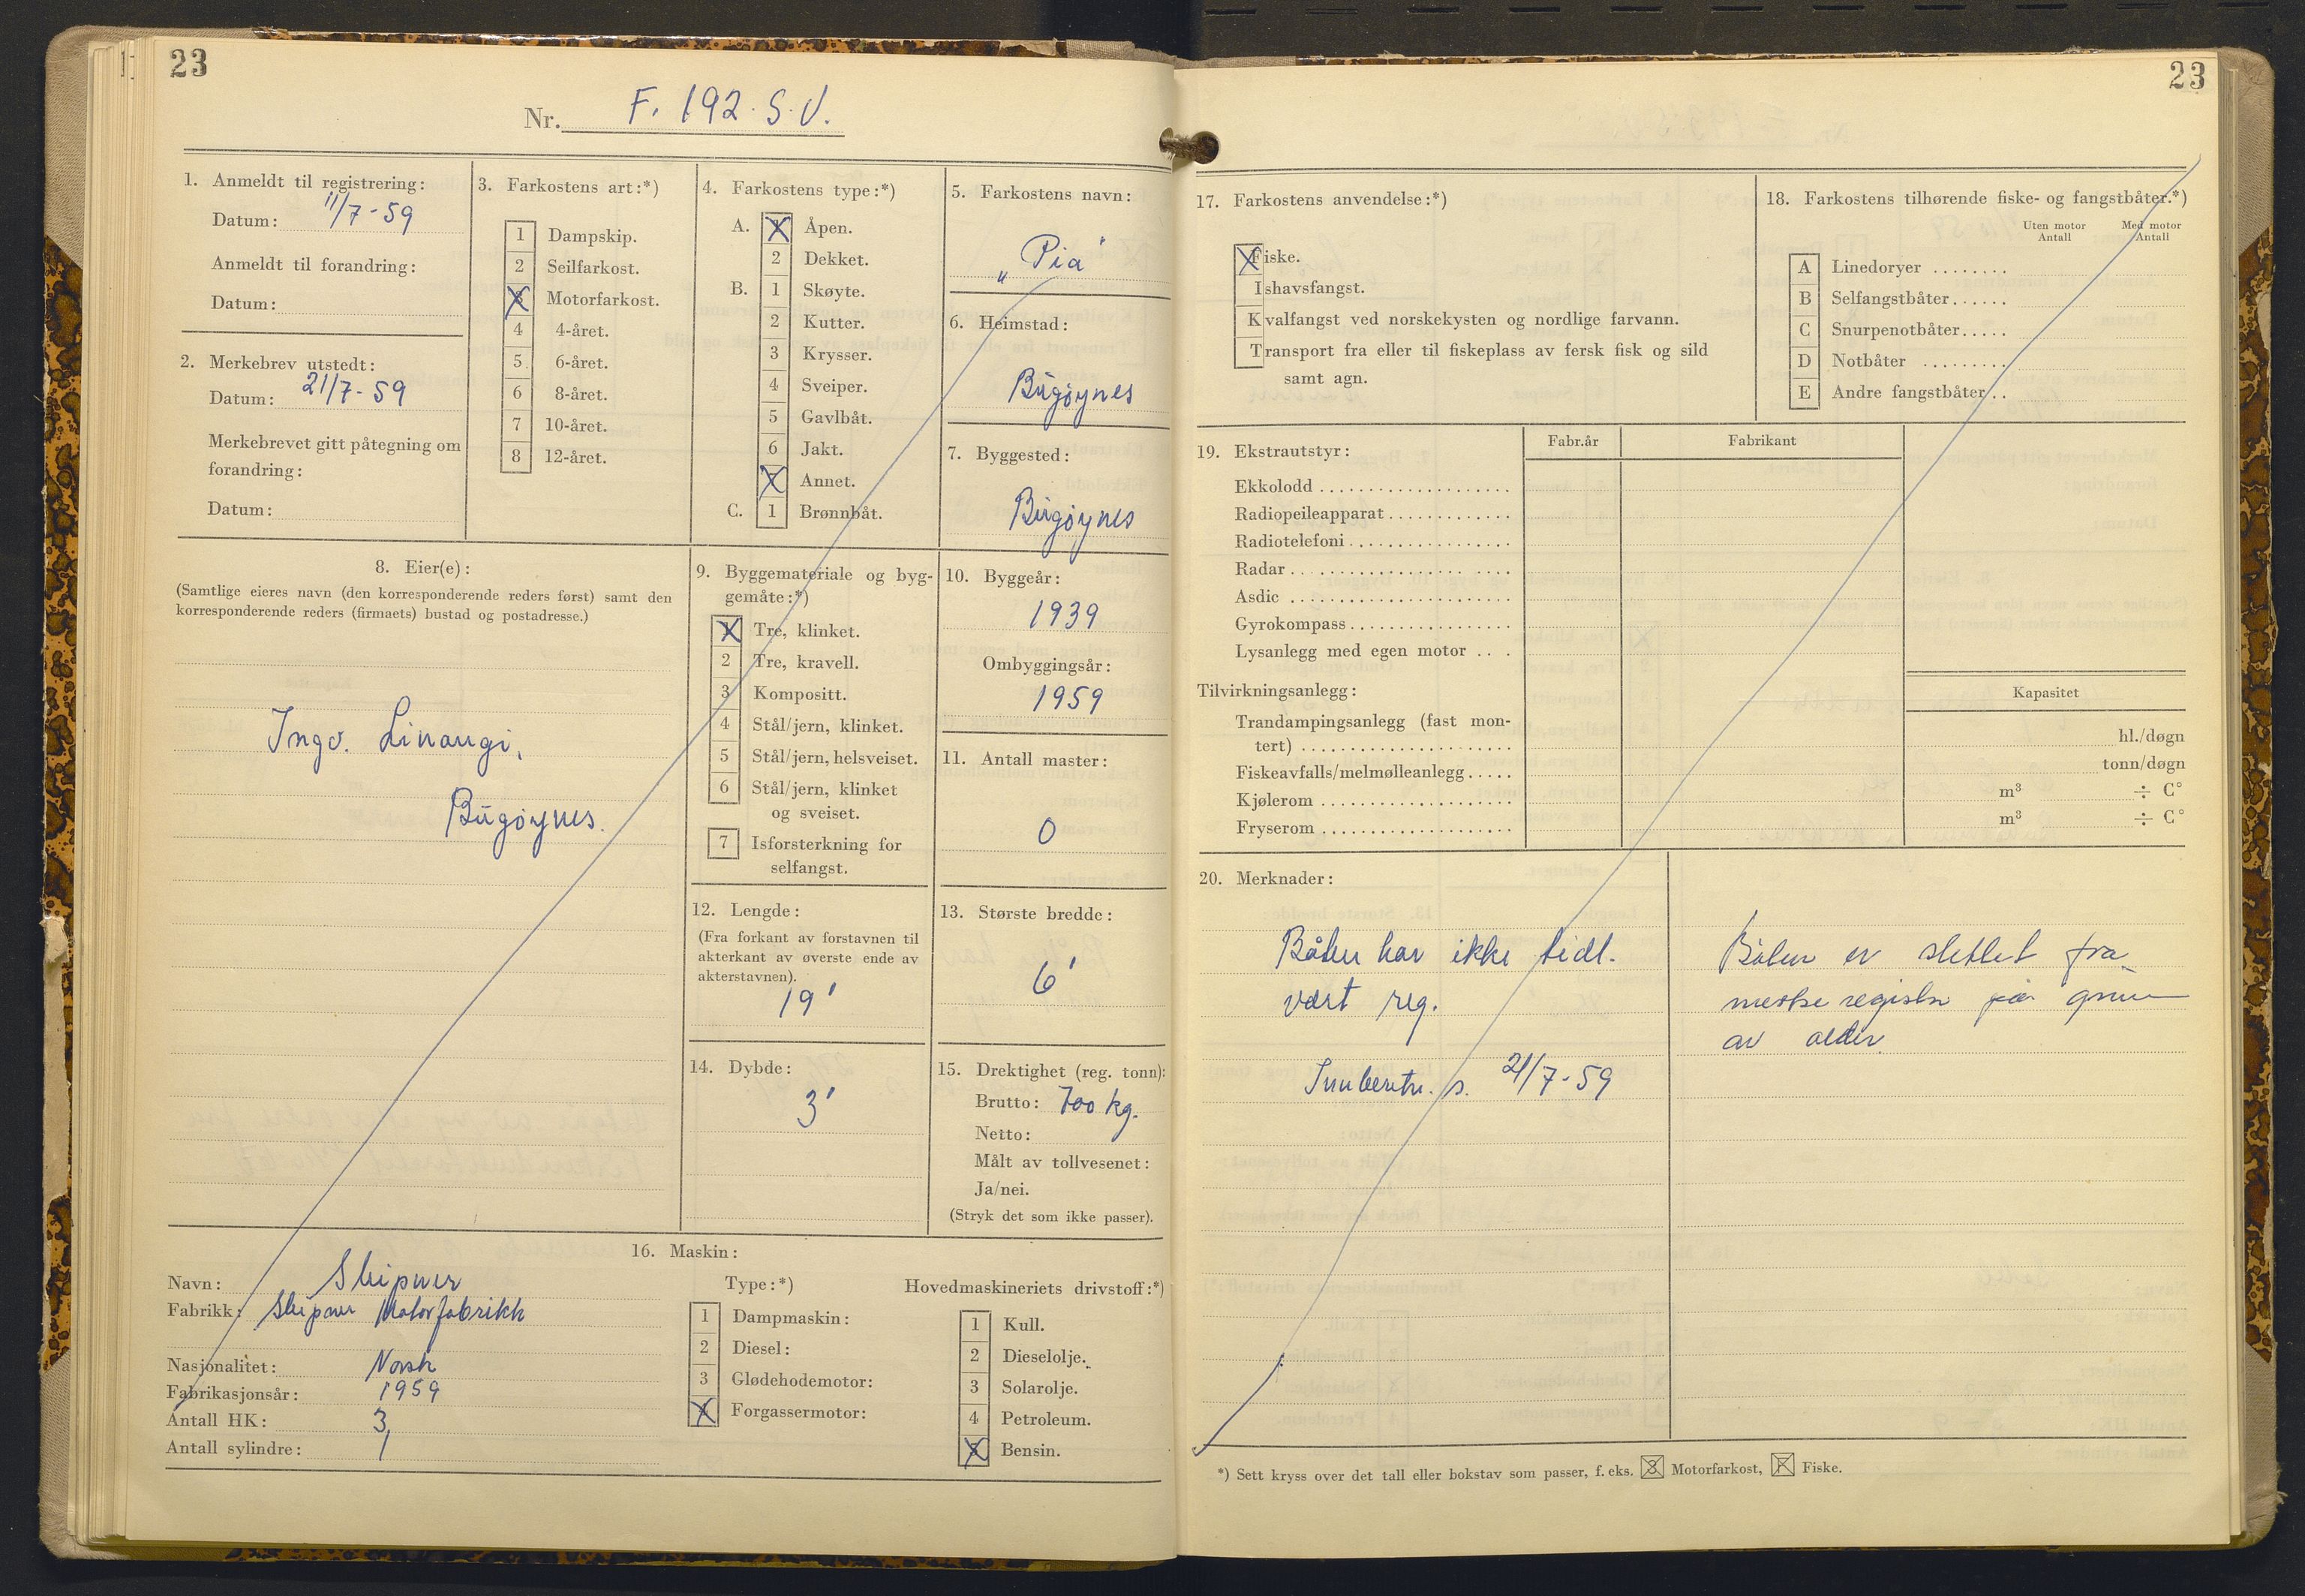 23
Nr. F. 192. S. V.
1. Anmeldt til registrering:
Datum: 11/7-59
Anmeldt til forandring:
Datum:
2. Merkebrev utstedt:
Datum: 21/7-59
Merkebrevet gitt påtegning om
forandring:
Datum:
3. Farkostens art:*)
1 Dampskip.
2 Seilfarkost.
3 Motorfarkost.
4 4-året.
5 6-året.
6 8-året.
7 10-året.
8 12-året.
4. Farkostens type:*)
A. 1 Åpen.
2 Dekket.
B. 1 Skøyte.
2 Kutter.
3 Krysser.
4 Sveiper.
5 Gavlbåt.
6 Jakt.
7 Annet.
C. 1 Brønnbåt.
5. Farkostens navn:
„Pia"
6. Heimstad:
Bugøynes
7. Byggested:
Bugøynes
8. Eier(e):
(Samtlige eieres navn (den korresponderende reders først) samt den
korresponderende reders (firmaets) bustad og postadresse.)
Ingv. Linaugi,
Bugøynes.
9. Byggemateriale og byg-
gemåte:*)
1 Tre, klinket.
2 Tre, kravell.
3 Kompositt.
4 Stål/jern, klinket.
5 Stål/jern, helsveiset.
6 Stål/jern, klinket
og sveiset.
7 Isforsterkning for
selfangst.
10. Byggeår:
1939
Ombyggingsår:
1959
11. Antall master:
0
12. Lengde:
(Fra forkant av forstavnen til
akterkant av øverste ende av
akterstavnen).
19'
13. Største bredde:
6'
14. Dybde:
3'
15. Drektighet (reg. tonn):
Brutto: 700 kg.
Netto:
Målt av tollvesenet:
Ja/nei.
(Stryk det som ikke passer).
16. Maskin:
Navn: Sleipner
Fabrikk: Sleipner Motorfabrikk
Nasjonalitet: Norsk
Fabrikasjonsår: 1959
Antall HK: 3
Antall sylindre: 1
Type:*)
1 Dampmaskin:
2 Diesel:
3 Glødehodemotor:
4 Forgassermotor:
Hovedmaskineriets drivstoff:*)
1 Kull.
2 Dieselolje.
3 Solarolje.
4 Petroleum.
5 Bensin.
23
17. Farkostens anvendelse:*)
Fiske.
Ishavsfangst.
Kvalfangst ved norskekysten og nordlige farvann.
Transport fra eller til fiskeplass av fersk fisk og sild
samt agn.
18. Farkostens tilhørende fiske- og fangstbåter.*)
Uten motor Med motor
Antall Antall
A Linedoryer ........
B Selfangstbåter ......
C Snurpenotbåter .....
D Notbåter .........
E Andre fangstbåter ..
19. Ekstrautstyr:
Fabr.år Fabrikant
Ekkolodd
Radiopeileapparat
Radiotelefoni
Radar
Asdic
Gyrokompass
Lysanlegg med egen motor ...
Tilvirkningsanlegg:
Kapasitet
Trandampingsanlegg (fast mon-
tert) hl./døgn
Fiskeavfalls/melmølleanlegg ..... tonn/døgn
Kjølerom m³ ÷ C°
Fryserom m³ ÷ C°
20. Merknader:
Båten har ikke tidl.
vært reg.
Innberetn. s. 21/7-59
Båten er slettet fra
merkeregistr på grunn
av alder
*) Sett kryss over det tall eller bokstav som passer, f. eks. 3 Motorfarkost, F Fiske.